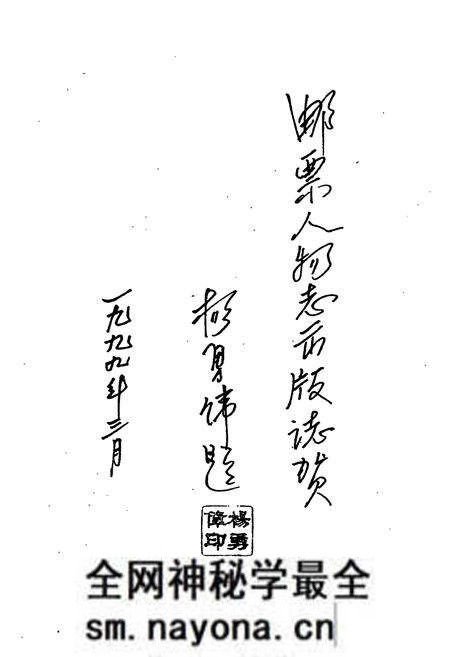 邮票人物志出版誌贺
杨勇伟题
一九九九年三月
楊勇
偉印
全网神秘学最全
sm.nayona.cn